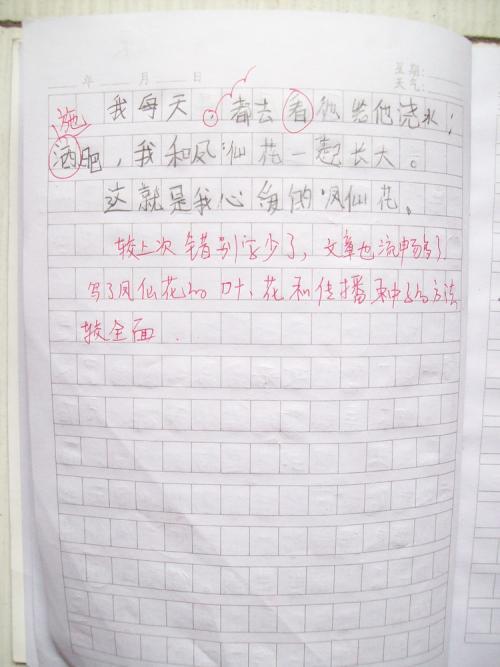 星期:
____年____月____日 天气:
我每天,都去看他给他浇水,
施
洒肥,我和凤仙花一起长大。
这就是我心爱的凤仙花。
较上次错别字少了,文章也流畅多了
写了凤仙花的叶、花和传播种子的方法
较全面.